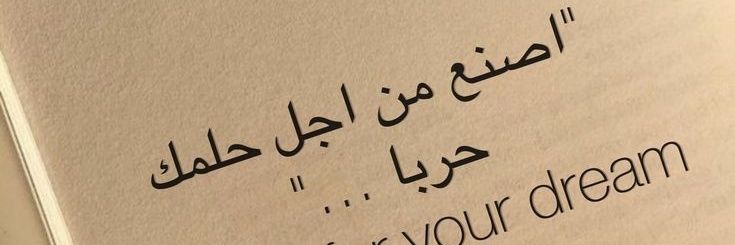 "اصنع من اجل حلمك
حربا ... "
your dream